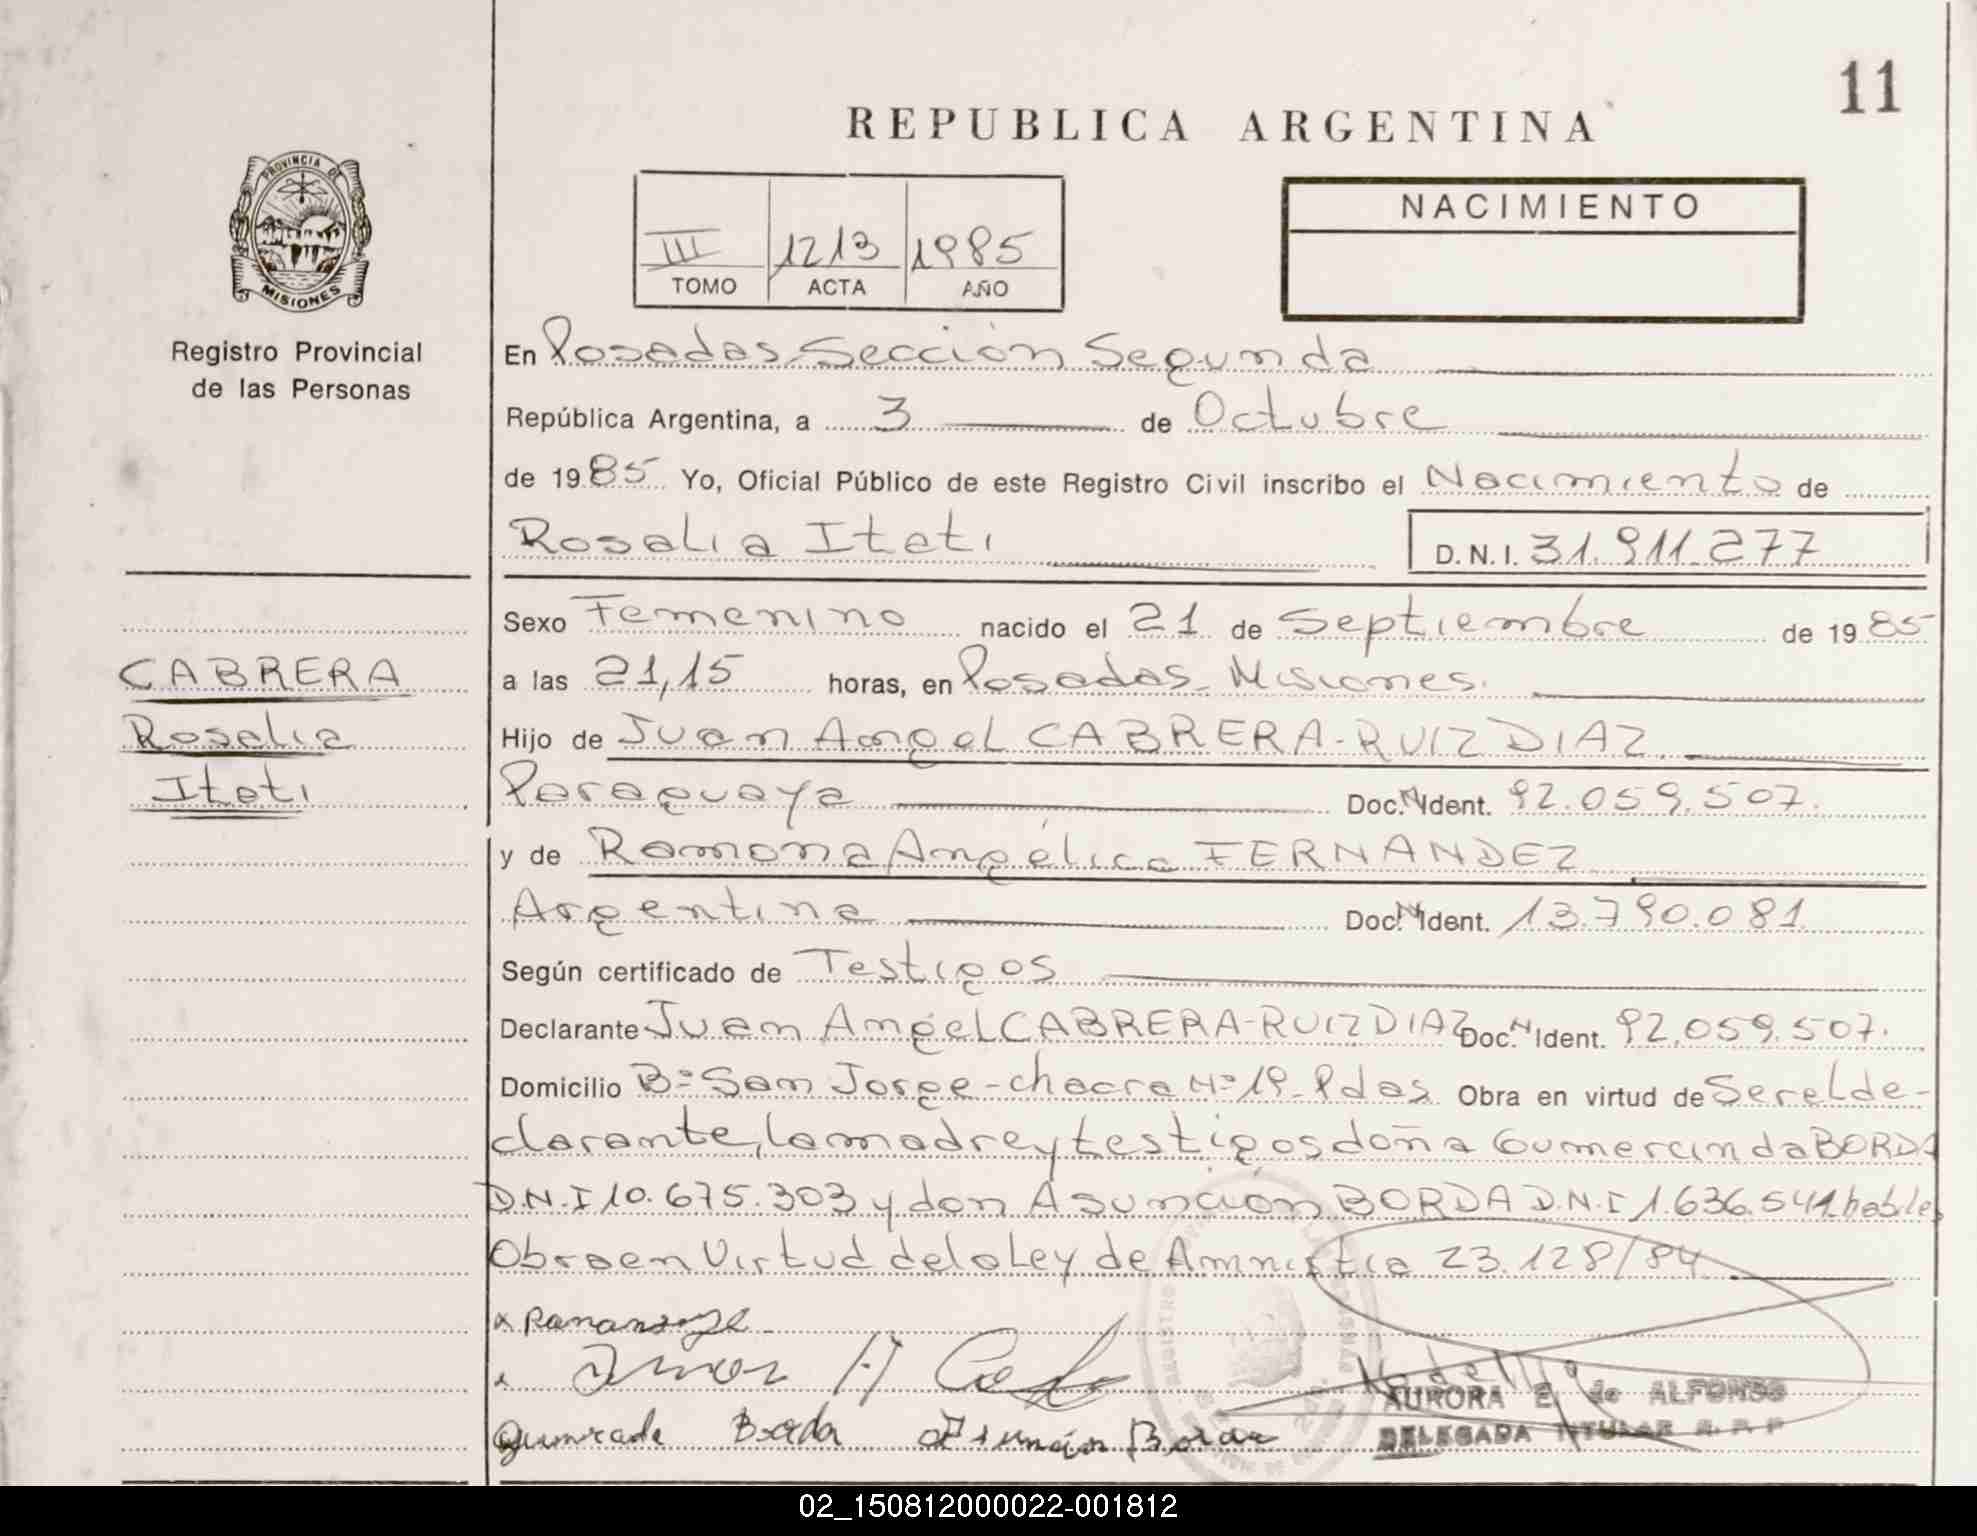 11
REPUBLICA ARGENTINA
PROVINCIA DE
MISIONES
Registro Provincial
de las Personas
III 1213 1985
TOMO ACTA AÑO
NACIMIENTO
En Posadas Sección Segunda
República Argentina, a 3 de Octubre
de 1985 Yo, Oficial Público de este Registro Civil inscribo el Nacimiento de
Rosalia Itati D.N.I. 31.911.277
Sexo Femenino nacido el 21 de Septiembre de 1985
CABRERA
Rosalia
Itati
a las 21,15 horas, en Posadas - Misiones.
Hijo de Juan Angel CABRERA-RUIZ DIAZ
Paraguaya Doc. N Ident. 92.059.507.
y de Ramona Angélica FERNANDEZ
Argentina Doc. N Ident. 13.790.081
Según certificado de Testigos
Declarante Juan Angel CABRERA-RUIZ DIAZ Doc. N Ident. 92.059.507.
Domicilio Bº San Jorge - chacra Nº 19 - Pdas Obra en virtud de Ser el de-
clarante, la madre y testigos doña Gumercinda BORDA
D.N.I 10.675.303 y don Asunción BORDA D.N.I 1.636.541 habiles
Obra en Virtud de la Ley de Amnistia 23.128/84
Juan A
Borda Asunción Borda
AURORA E. de ALFONSO
DELEGADA TITULAR R. P. P
02_150812000022-001812